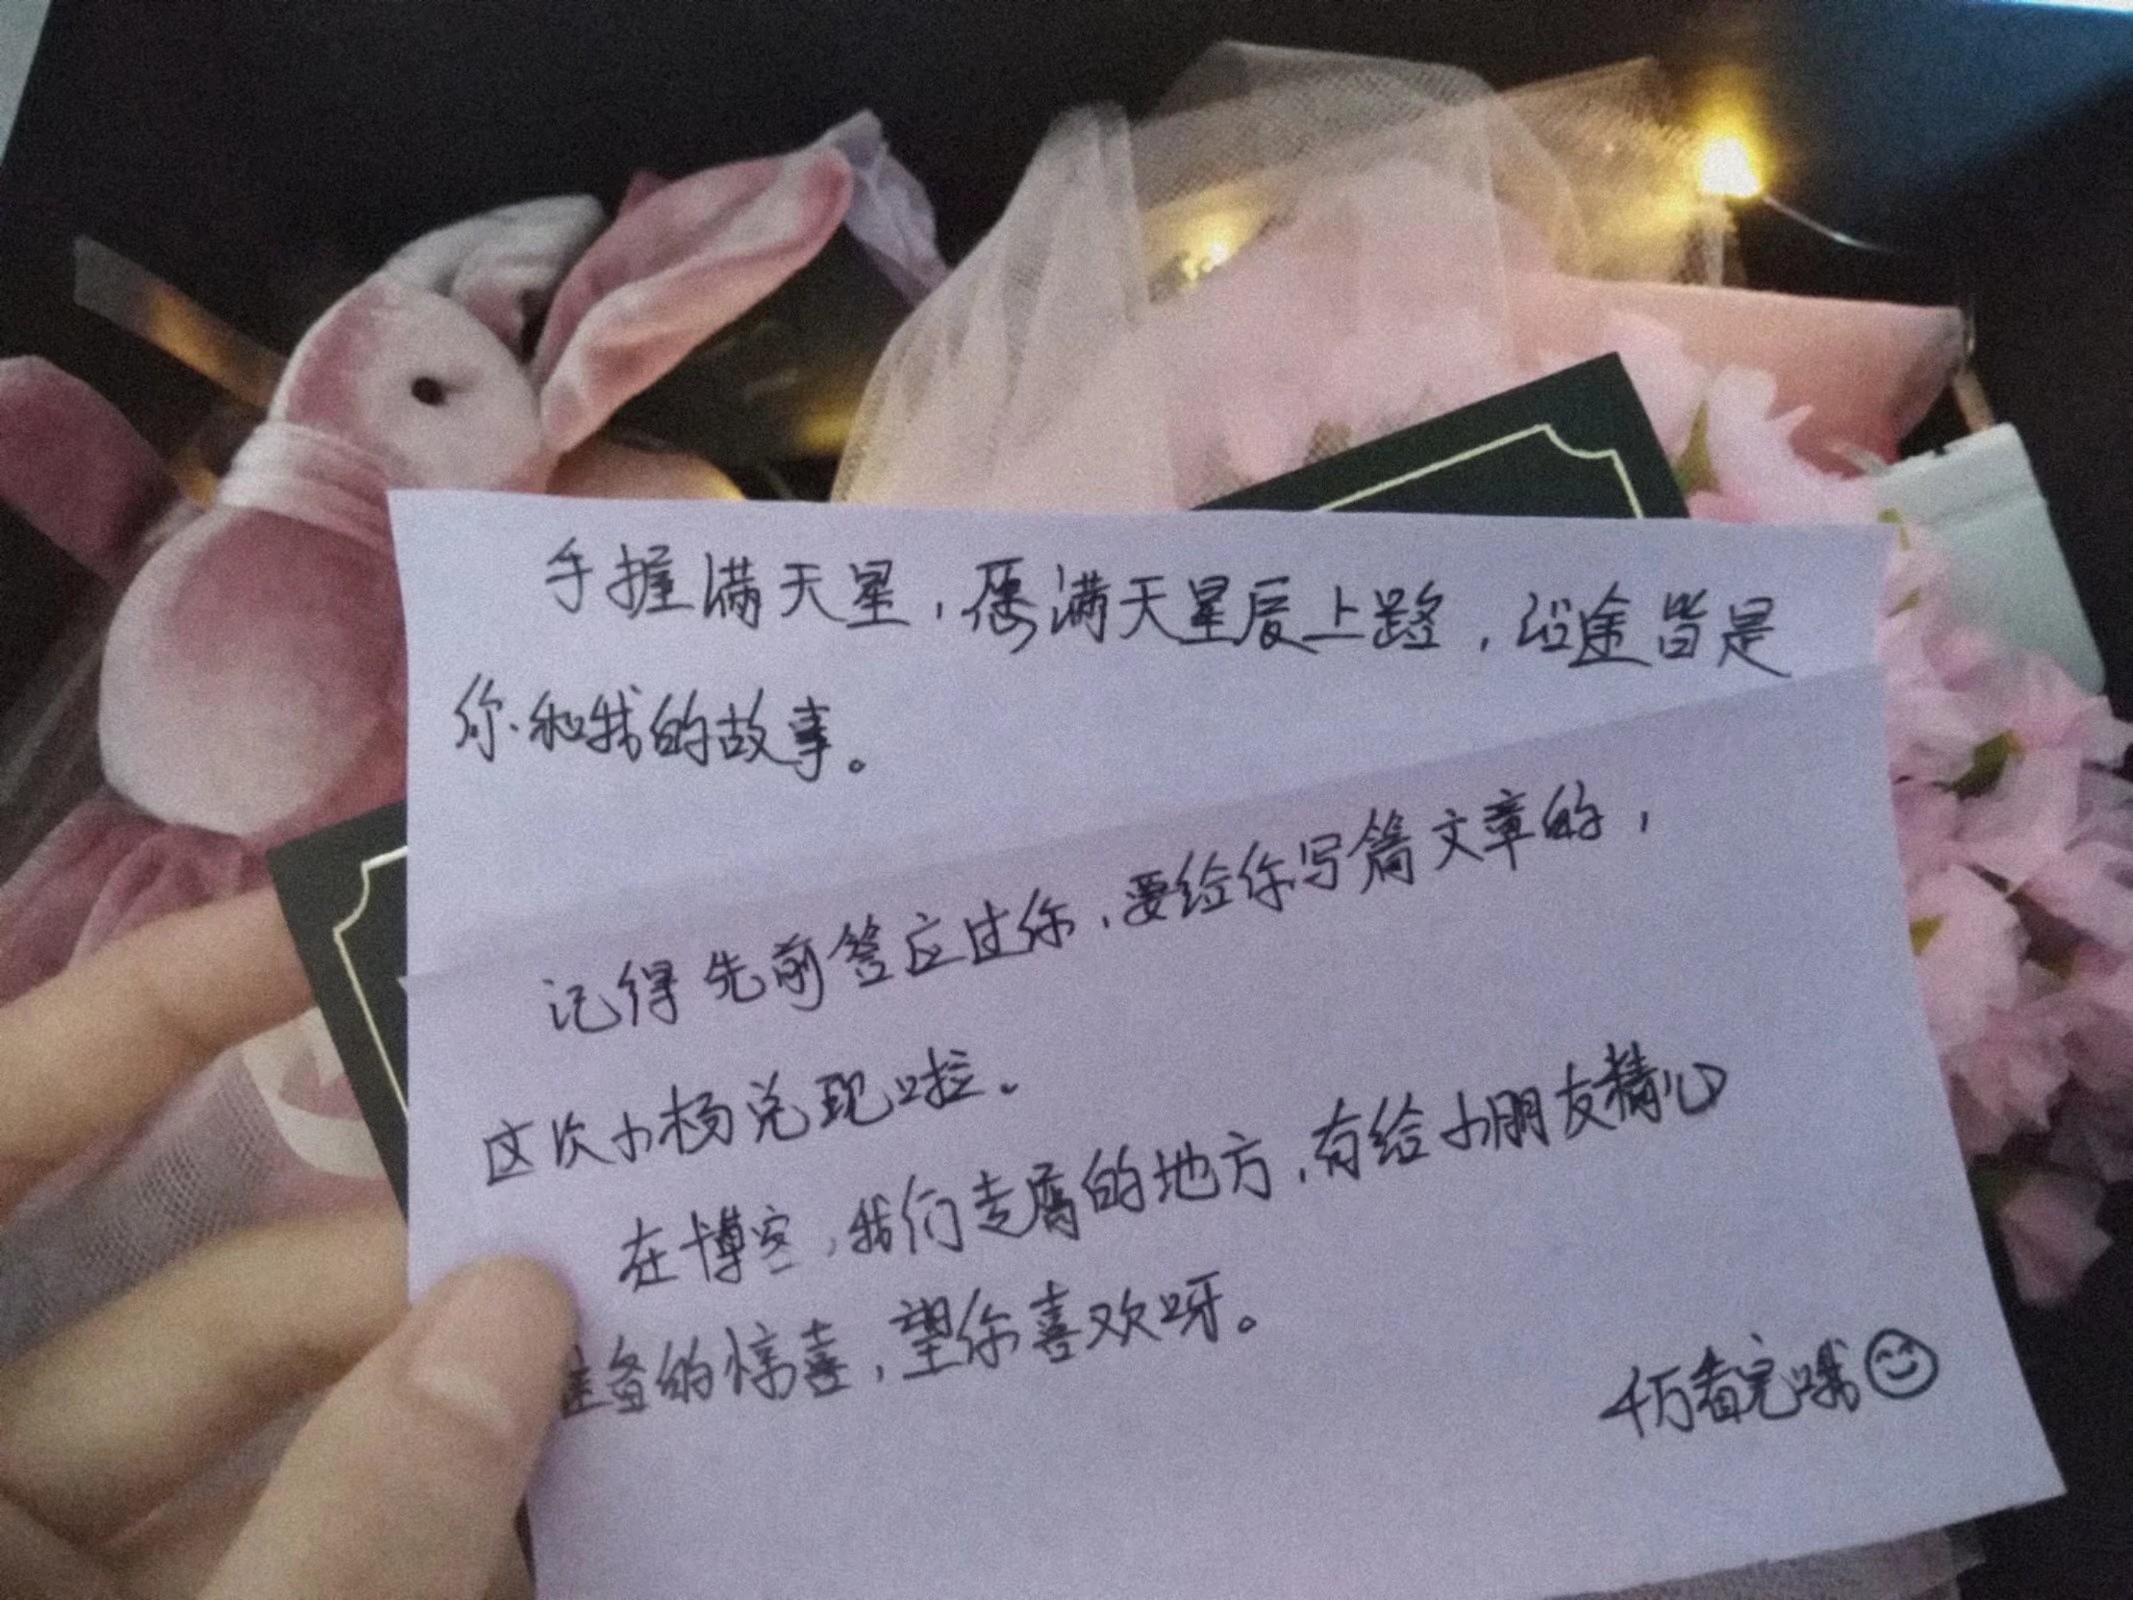 手握满天星，愿满天星辰上路，沿途皆是
你和我的故事。
记得先前答应过你，要给你写篇文章的，
这次小杨兑现啦。
在博客，我们专属的地方，有给小朋友精心
准备的惊喜，望你喜欢呀。
千万看完哦